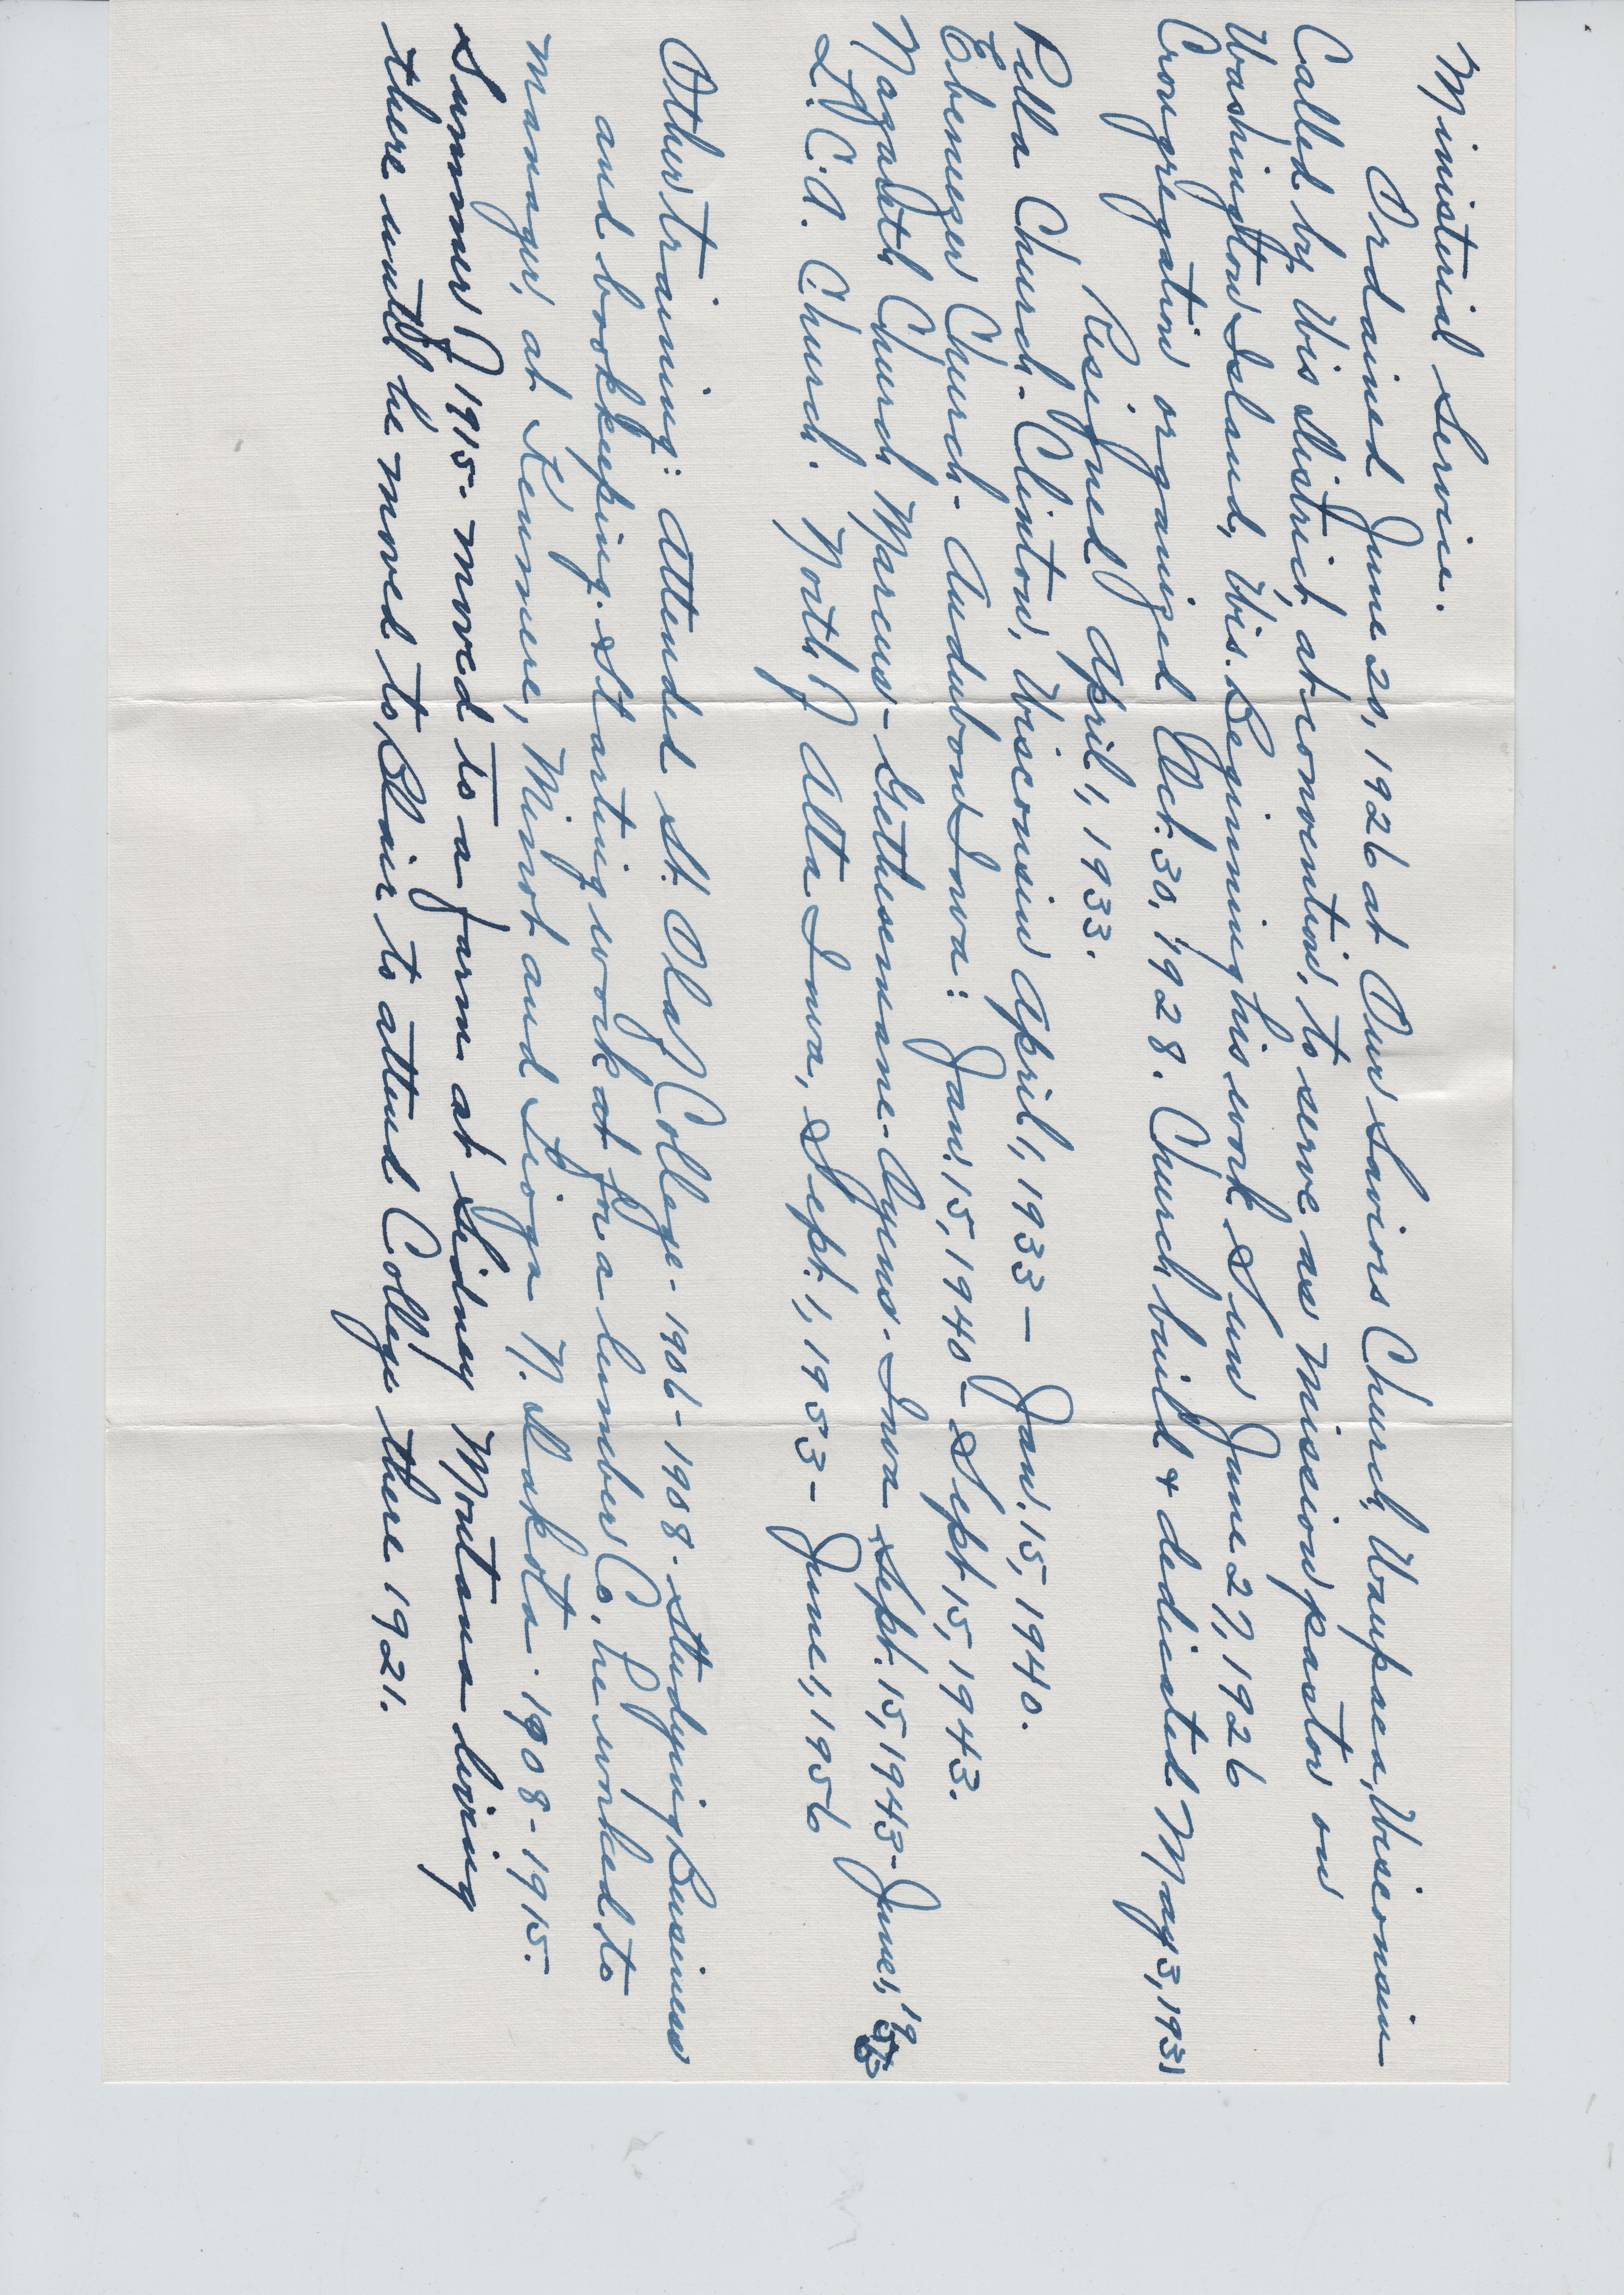 Ministerial Service.
Ordained June 20, 1926 at Our Saviors Church, Waupaca, Wisconsin
Called by Wis District, at convention, to serve as Mission pastor on
Washington Island, Wis. Beginning his work Sun June 27, 1926
Crongregation organized Oct. 30, 1928. Church build & dedicated May 3, 1931
Resigned April 1, 1933.
Pella Church - Clinton, Wisconsin April 1, 1933 - Jan. 15, 1940.
Ebenezer Church - Audubon Iowa: Jan. 15, 1940 - Sept 15, 1943.
Nazareth Church Marcus - Gethesemane - Ayeus - Iowa Sept. 15, 1943 - June 1, 1953
L.C.A. Church. North of Alta Iowa, Sept. 1, 1953 - June 1, 1956
Other training: Attended St. Olaf College - 1906 - 1908 - Studying Business
and bookkeeping. Starting work at for a lumber Co. he worked to
manager, at Kenmere, Minot and Tioga N. Dakota - 1908 - 1915.
Summer of 1915 - moved to a farm at Sidney Montana living
there until he moved to Blair to attend College there 1921.